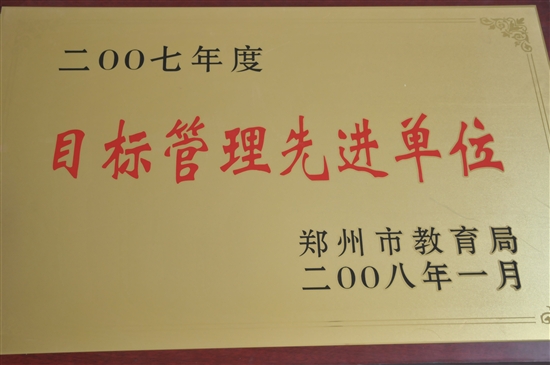 二〇〇七年度
目标管理先进单位
郑州市教育局
二〇〇八年一月